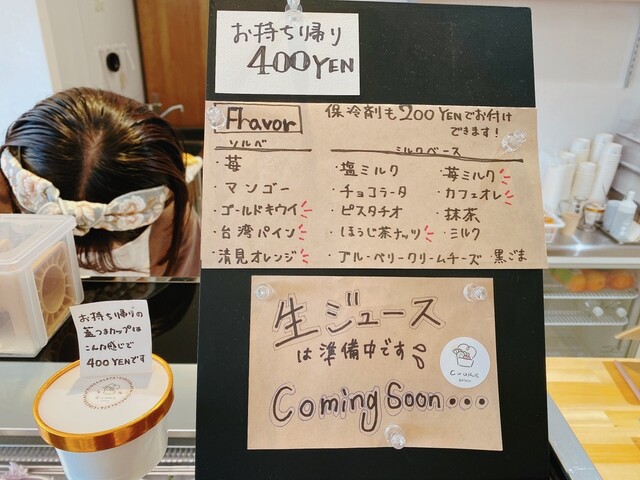 お持ち帰り
400YEN
Flavor
保冷剤も200YENでお付け
できます!
ソルベ
・苺
・マンゴー
・ゴールドキウイ
・台湾パイン
・清見オレンジ
ミルクベース
・塩ミルク
・チョコラータ
・ピスタチオ
・ほうじ茶ナッツ
・ブルーベリークリームチーズ
・苺ミルク
・カフェオレ
・抹茶
・ミルク
・黒ごま
生ジュース
は準備中です
Coming Soon...
お持ち帰りの
蓋つきカップは
こんな感じで
400YENです